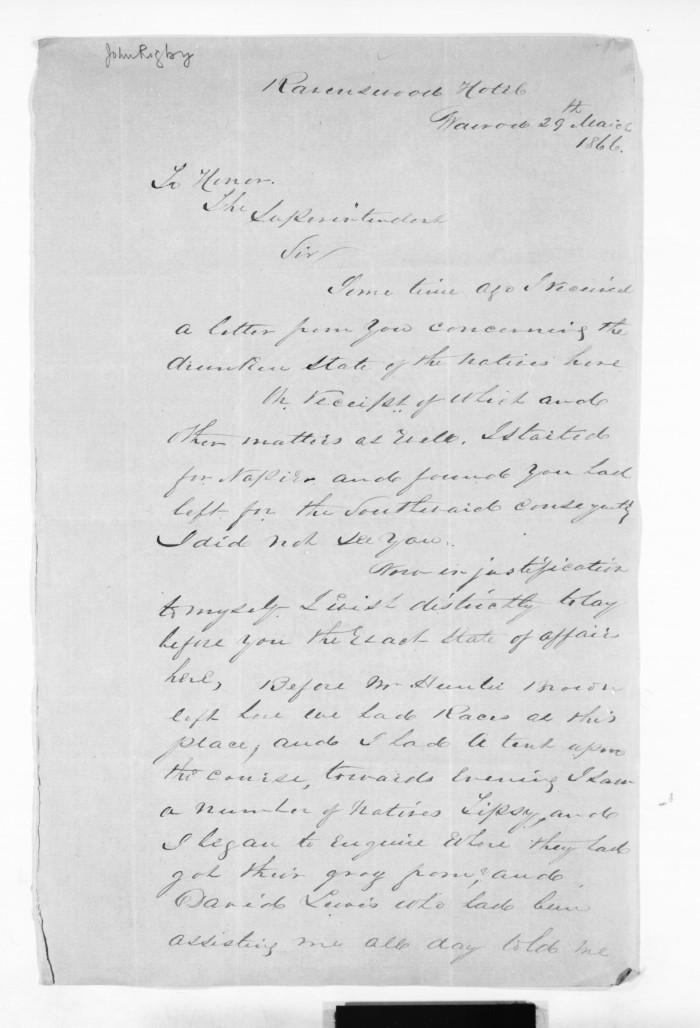 John Rigby
Ravenswood Hotel
Wairoa 29th March
1866.
To Honor.
The Superintendent
Sir
Some time ago I received
a letter from You concerning the
drunken State of the Natives here
On receipt of Which and
Other matters as Well. I started
for Napier and found You had
left for the Southward consequently
I did not See You.
Now in justification
to myself I wish distinctly to lay
before you the Exact State of affairs
here, Before Mr Hunter Brown
left here We had Races at this
place, and I had A tent upon
the course, towards Evening I saw
a number of Natives Tipsy, and
I began to Enquire Where they had
got their grog from, and
David Lewis who had been
assisting me all day told me